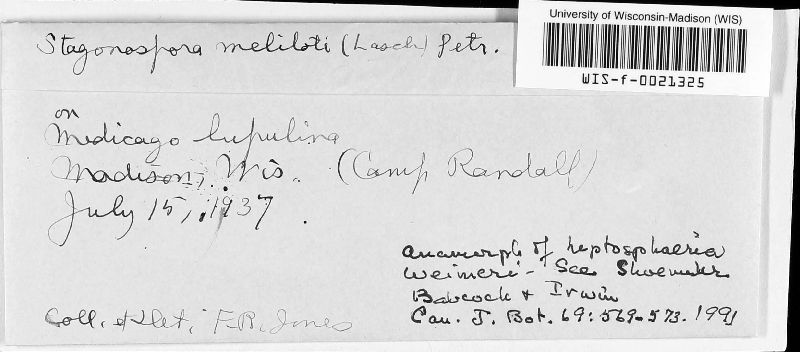 University of Wisconsin-Madison (WIS)
WIS-f-0021325
Stagonospora meliloti (Lasch) Petr.
on
Medicago lupulina
Madison, Wis. (Camp Randall)
July 15, 1937.
anamorph of Leptosphaeria
weimeri - See Shoemaker
Babcock & Irwin
Can. J. Bot. 69: 569-573. 1991
Coll. et Det. F.R. Jones